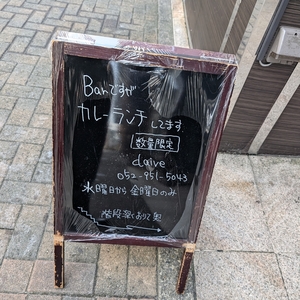 Barですが
カレーランチしてます
数量限定
daive
052-951-5043
水曜日から金曜日のみ
階段深くおりて奥